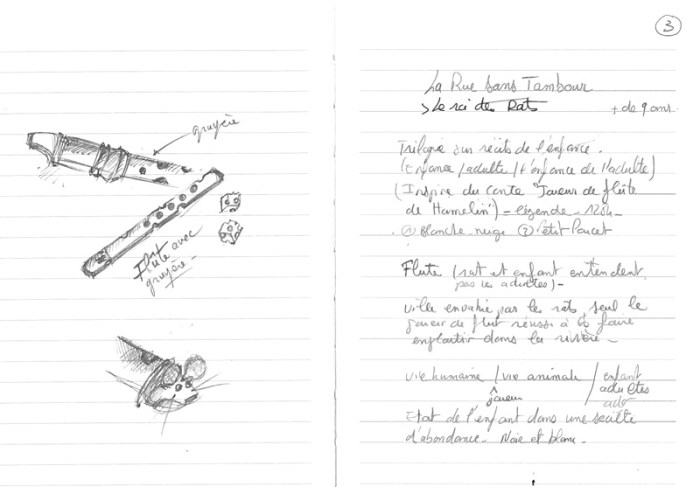 gruyère
Flute avec
gruyère -
3
La Rue sans Tambour
> Le roi des Rats + de 9 ans
Trilogie sur récits de l'enfance.
(Enfance / adulte / + enfance de l'adulte)
(Inspiré du conte "Joueur de flûte
de Hamelin") = légende - 1284 -
① Blanche neige ② Petit Poucet
Flute (rat et enfant entendent
pas les adultes) -
ville envahie par les rats, seul le
joueur de flut réussi à les faire
engloutir dans la rivière -
vie humaine / vie animale / enfant
adultes
ado
joueur
Etat de l'enfant dans une société
d'abondance - Noir et blanc -